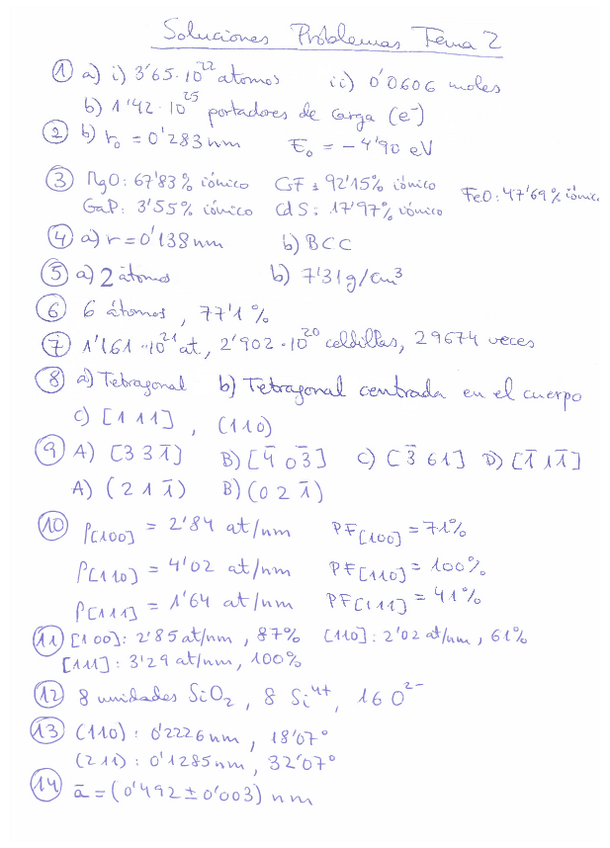 Soluciones Problemas Tema 2
① a) i) 3'65·10²² atomos ii) 0'0606 moles
b) 1'42·10²⁵ portadores de carga (e⁻)
② b) r₀ = 0'283 nm E₀ = -4'90 eV
③ MgO: 67'83% iónico CsF: 92'15% iónico FeO: 47'69% iónico
GaP: 3'55% iónico CdS: 17'97% iónico
④ a) r = 0'138 nm b) BCC
⑤ a) 2 átomos b) 7'31 g/cm³
⑥ 6 átomos, 77'1%
⑦ 1'161·10²¹ at., 2'902·10²⁰ celdillas, 29674 veces
⑧ a) Tetragonal b) Tetragonal centrada en el cuerpo
c) [111], (110)
⑨ A) [3 3 1̄] B) [4̄ 0 3̄] C) [3̄ 6 1] D) [1̄ 1 1̄]
A) (2 1 1̄) B) (0 2 1̄)
⑩ ρ[100] = 2'84 at/nm PF[100] = 71%
ρ[110] = 4'02 at/nm PF[110] = 100%
ρ[111] = 1'64 at/nm PF[111] = 41%
⑪ [100]: 2'85 at/nm, 87% [110]: 2'02 at/nm, 61%
[111]: 3'29 at/nm, 100%
⑫ 8 unidades SiO₂, 8 Si⁴⁺, 16 O²⁻
⑬ (110): 0'2226 nm, 18'07°
(211): 0'1285 nm, 32'07°
⑭ ā = (0'492 ± 0'003) nm